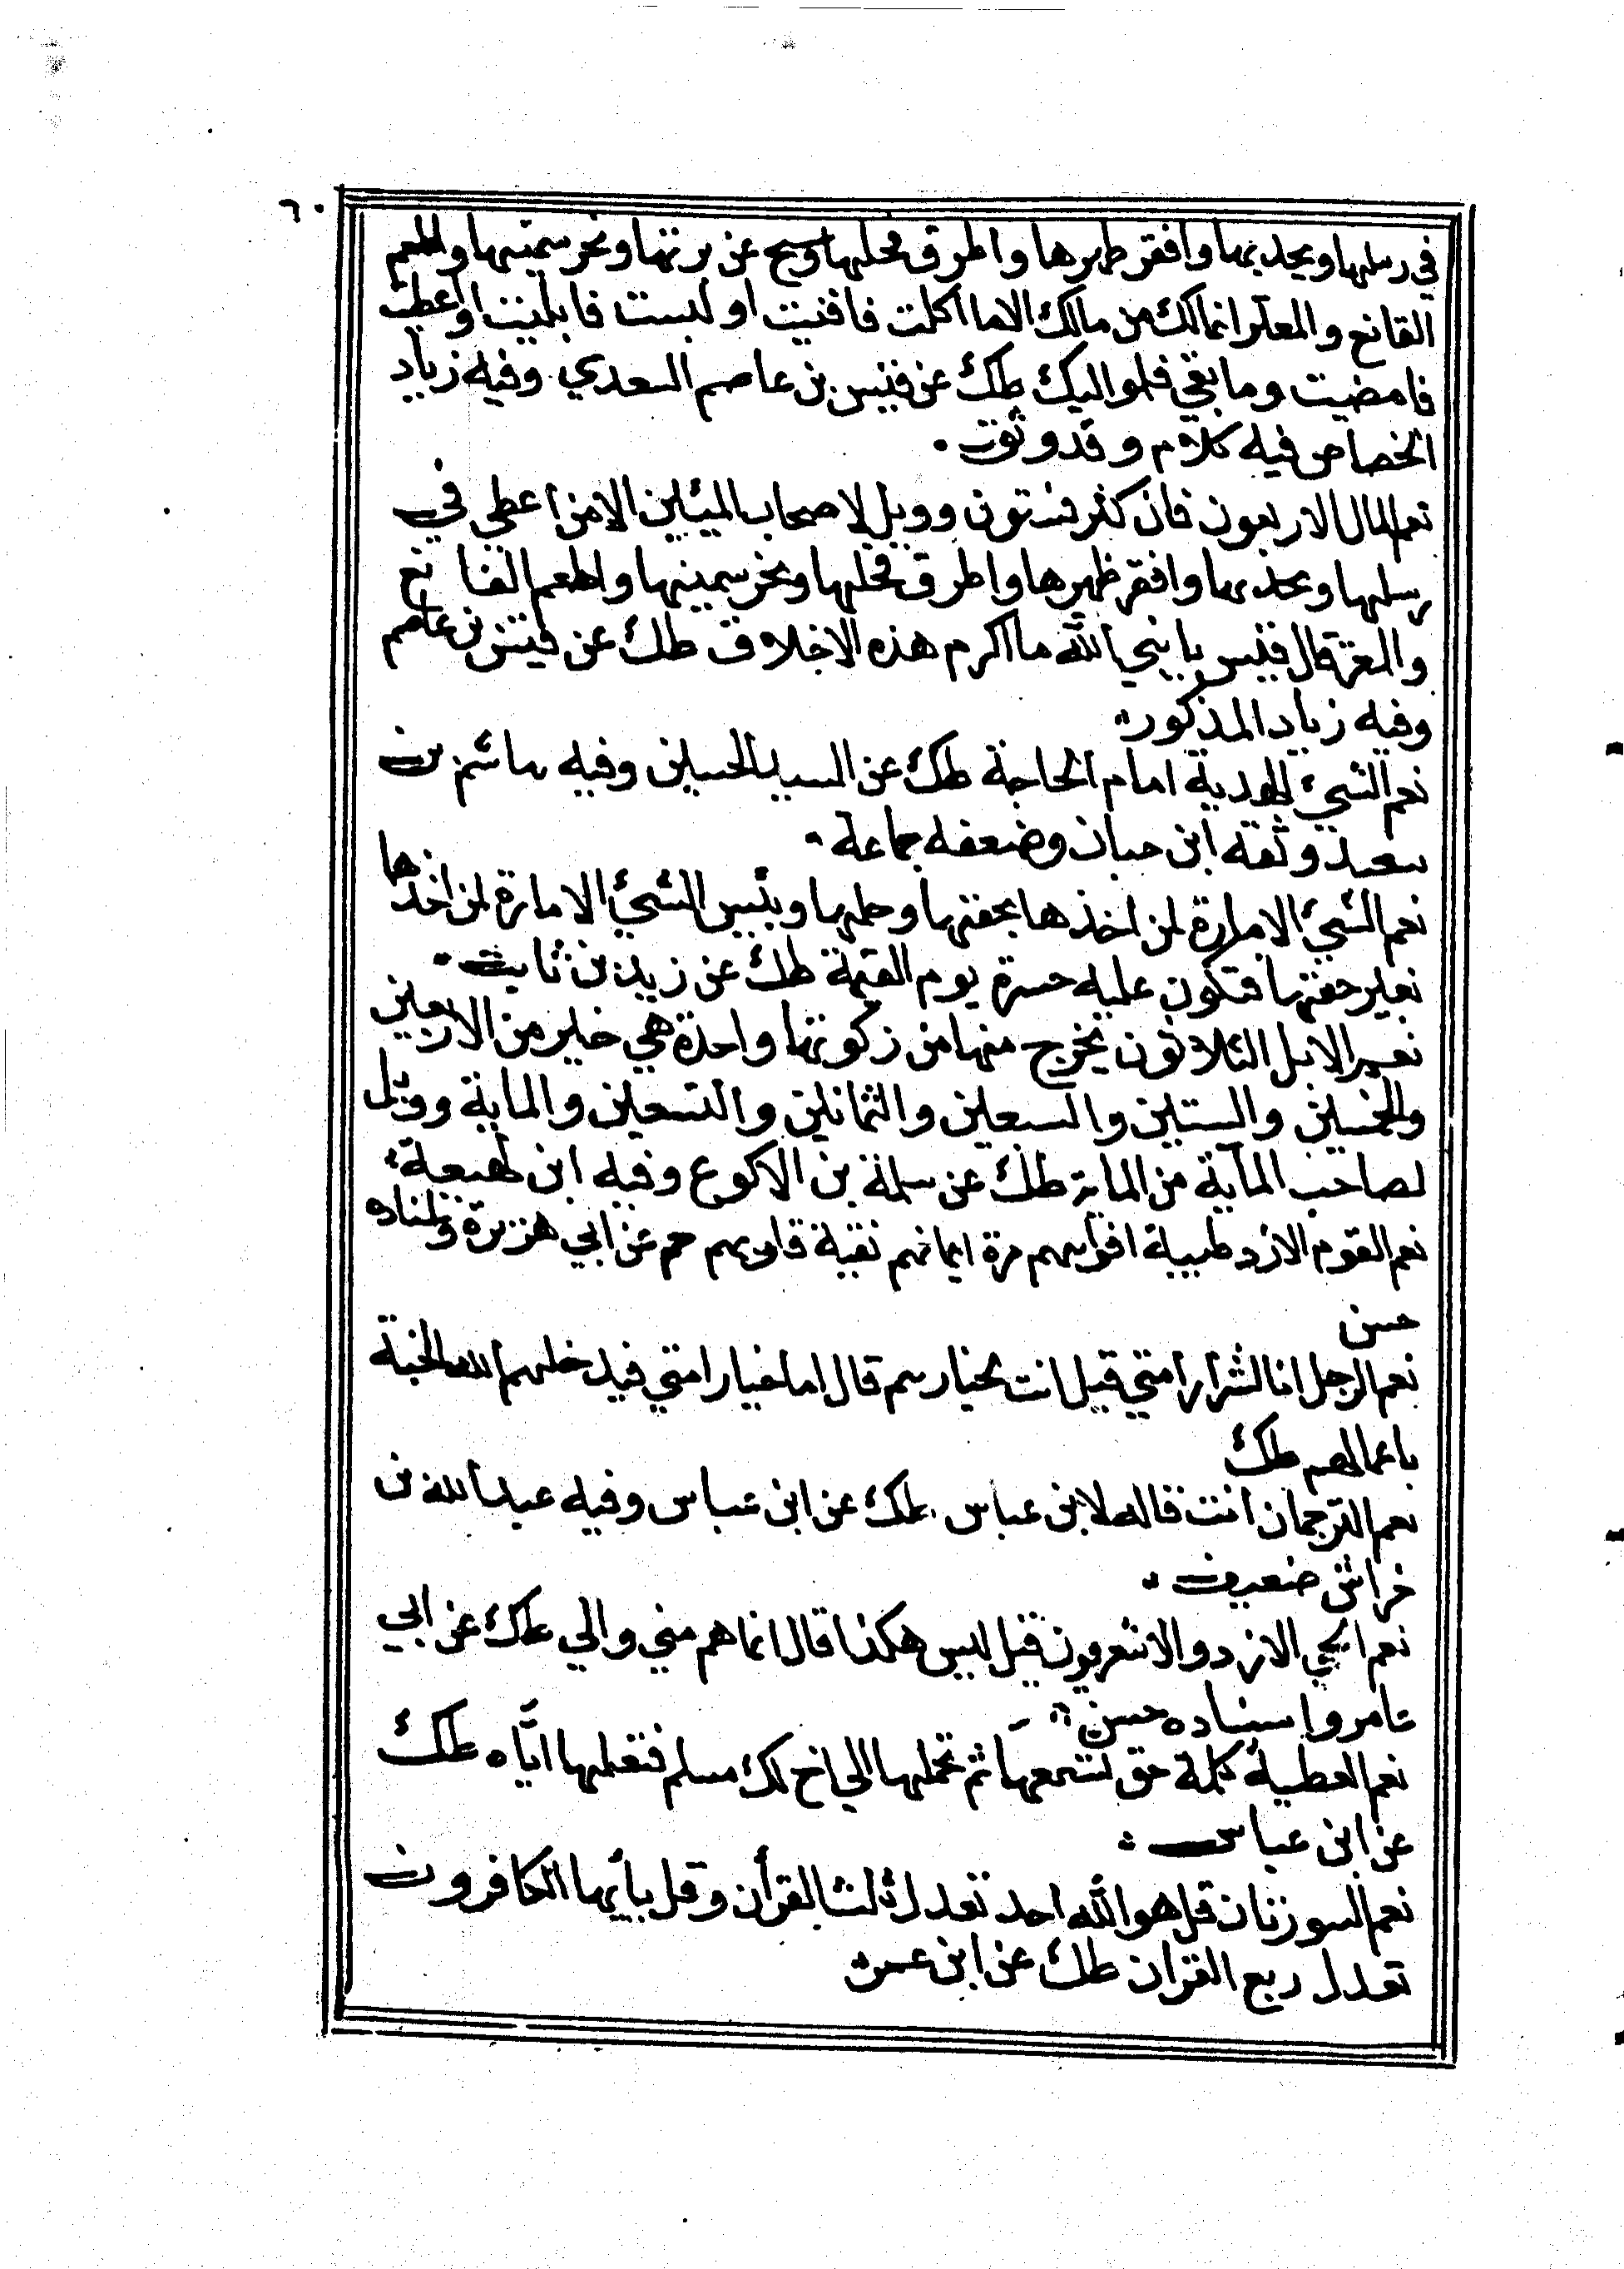 ٦٠
في رسلها ويحدبها وافقر ظهرها واطرق فحلها ونحر سمينها واطعم
القانع والمعتر انما لك من مالك الا ما اكلت فافنيت او لبست فابليت او اعطيت
فامضيت وما بقي فلمواليك طك عن قيس بن عاصم السعدي وفيه زياد
الخصاص فيه كلام وقد وثق
نعم المال الاربعون فان كثر فستون وويل لاصحاب المئين الا من اعطى في
رسلها ونحدبها وافقر ظهرها واطرق فحلها ونحر سمينها واطعم القانع
والمعتر قال قيس يا نبي الله ما اكرم هذه الاخلاق طك عن قيس بن عاصم
وفيه زياد المذكور
نعم الشيء الهدية امام الحاجة طك عن السيد الحسين وفيه هاشم بن
سعيد وثقه ابن حبان وضعفه جماعة
نعم الشيء الامارة لمن اخذها بحقها وحلها وبئس الشيء الامارة لمن اخذها
بغير حقها فتكون عليه حسرة يوم القيمة طك عن زيد بن ثابت
نعم الابل الثلاثون يخرج منها من زكوتها واحدة هي خير من الاربعين
والخمسين والستين والسبعين والثمانين والتسعين والماية وويل
لصاحب المآية من الماية طك عن سلمة بن الاكوع وفيه ابن لهيعة
نعم القوم الازد طيبة افواههم برة ايمانهم نقية قلوبهم حم عن ابي هريرة واسناده
حسن
نعم الرجل انا لشرار امتي قيل انت لخيارهم قال اما خيار امتي فيدخلهم الله الجنة
باعمالهم طك
نعم الترجمان انت قاله لابن عباس طك عن ابن عباس وفيه عبد الله بن
خراش ضعيف
نعم الحي الازد والاشعريون قيل ليس هكذا قال انما هم مني والي طك عن ابي
عامر واسناده حسن
نعم العطية كلمة حق تسمعها ثم تحملها الى اخ لك مسلم فتعلمها اياه طك
عن ابن عباس
نعم السورتان قل هو الله احد تعدل ثلث القرأن وقل يا أيها الكافرون
تعدل ربع القران طك عن ابن عمر